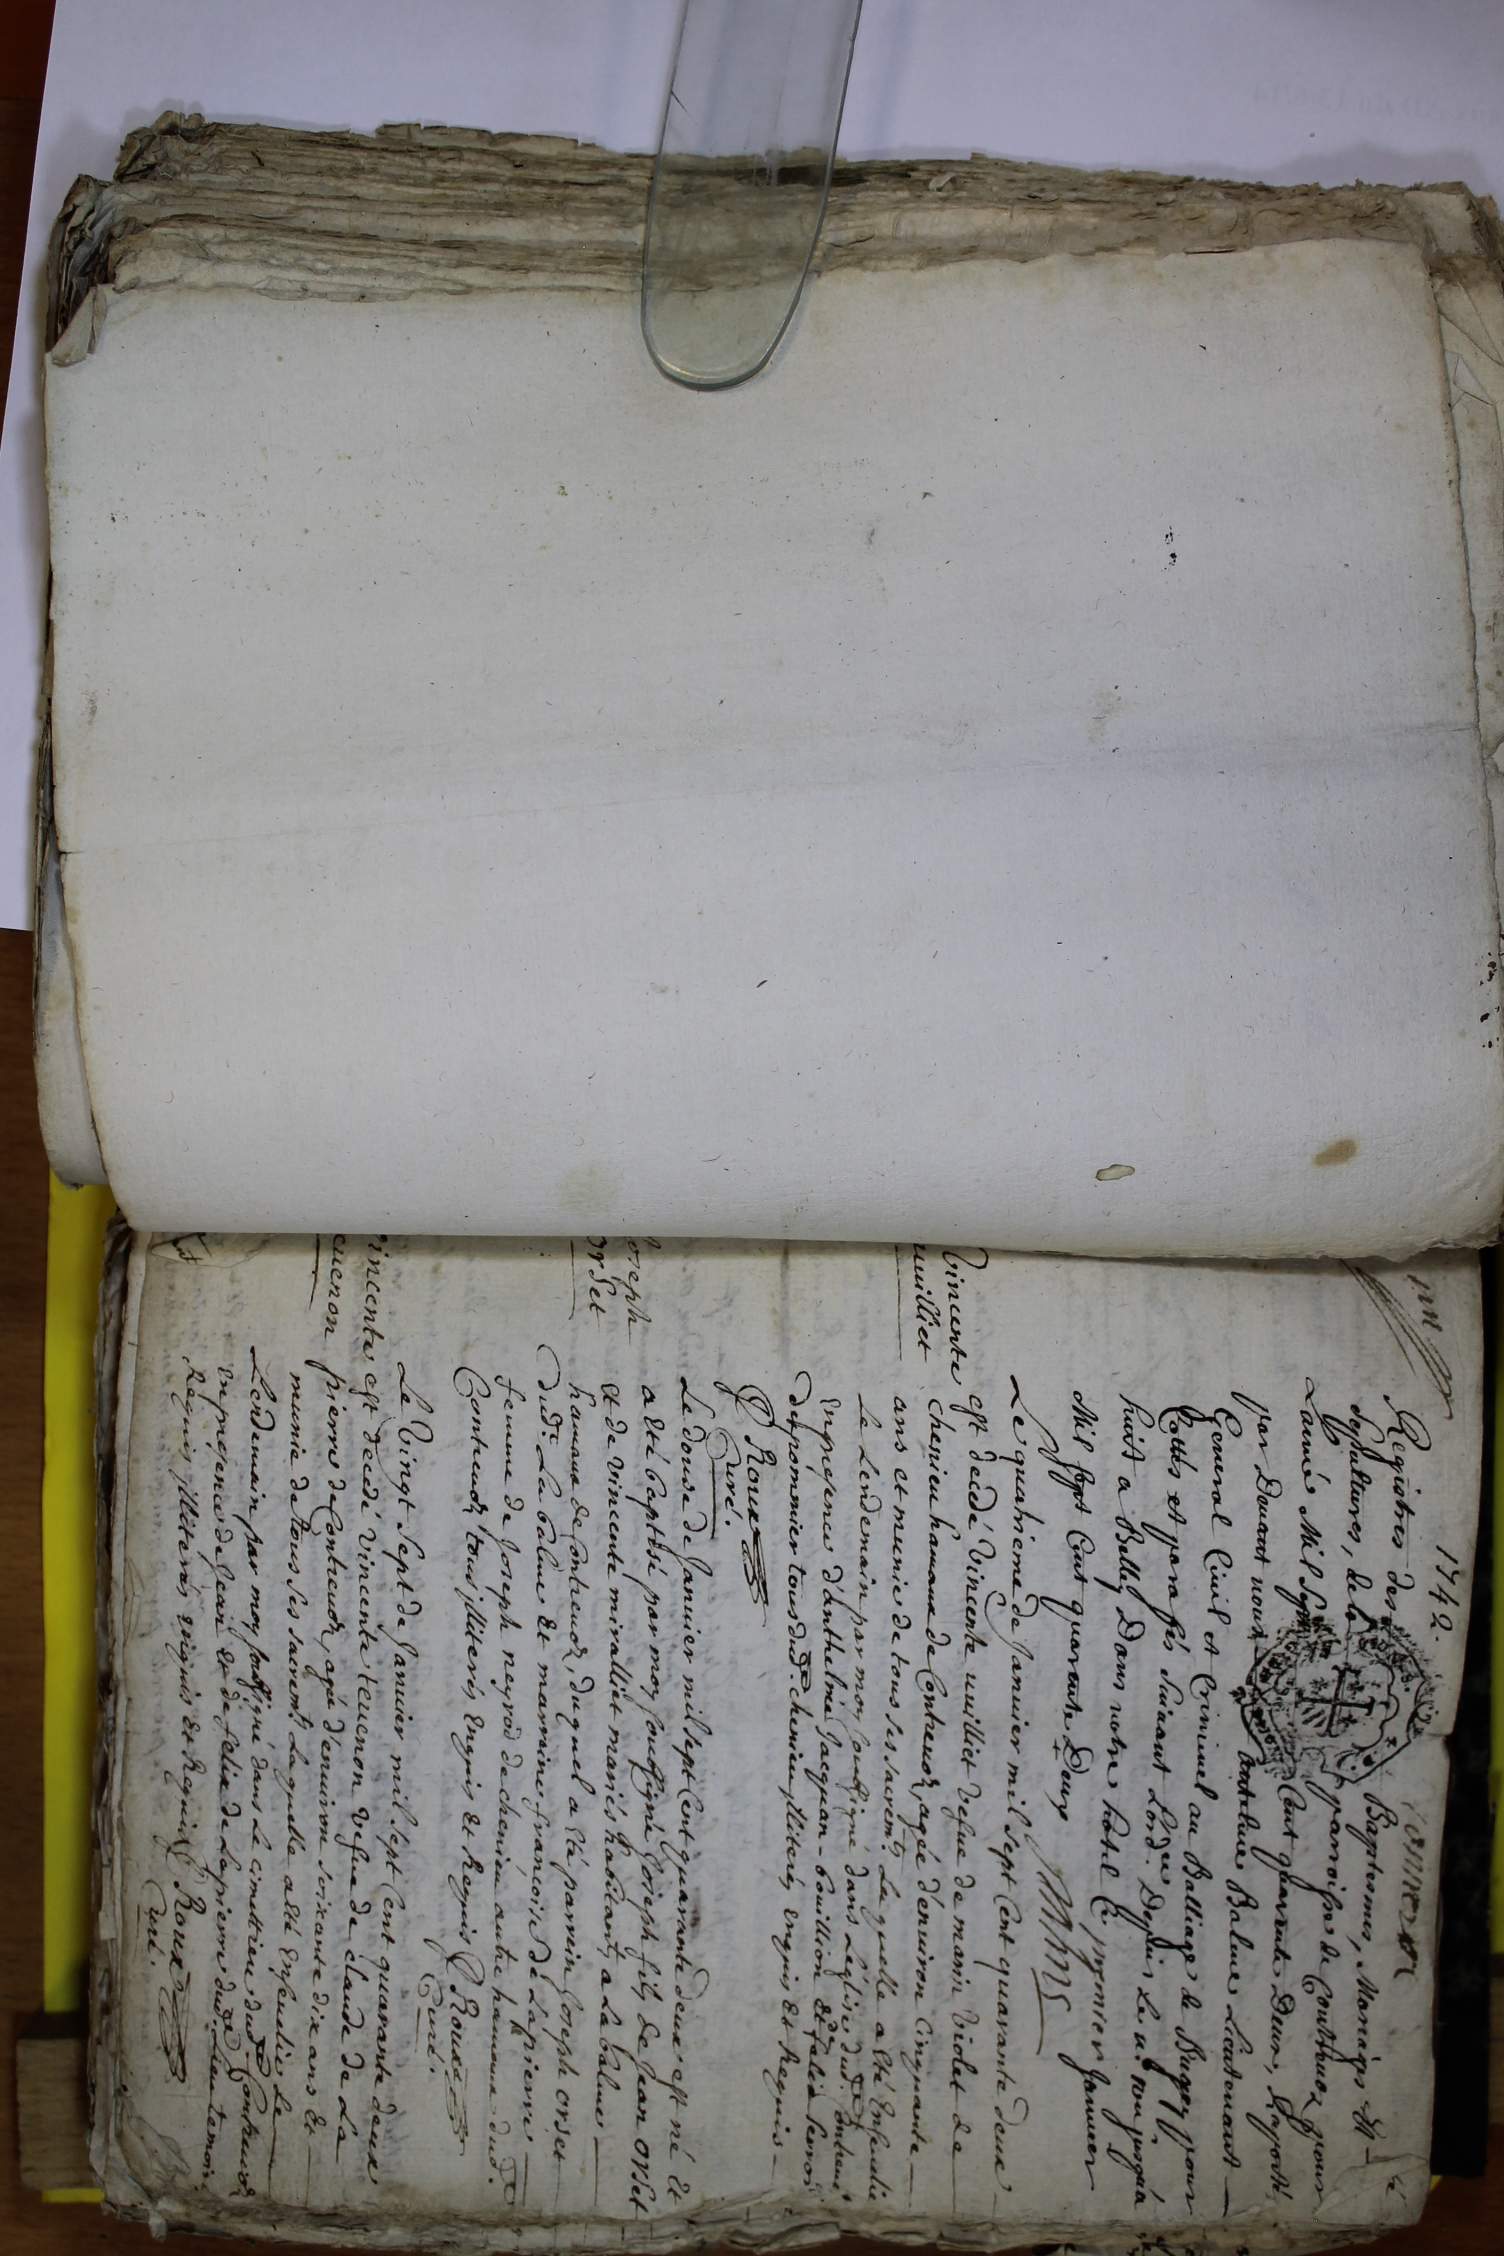 1742.
Registres des Baptesmes, Mariages Et
Sepultures, de la parroisse de Contrevoz pour
L'année Mil Sept Cent quarante Deux,
par Devant nous Balme Lieutenant
General Civil et Criminel au Balliage de Bugey pour
Cottés et parafés suivant Lord. Depuis Le n. jusqua
huit a Belley Dans notre hotel Ce premier Janvier
Mil Sept Cent quarante Deux
Le quatrieme de Janvier mil sept Cent quarante deux
Vincente
uilliet
est decedé Vincente uuilliet vefue de marin Violet de
chenieu hameau de Contrevoz, agée d'environ Cinquante
ans et munie de tous ses sacremts Laquelle a eté Ensevelie
le Lendemain par moy soussigné dans L'église dud. Contrevoz
En presence d'anthelme Jacquan-bouillion et de
de pommier tous dud. chenieu illiterés Enquis et Requis
Roux
Curé.
Le douse de Janvier mil sept Cent quarante deux est né Et
Joseph
orset
a été baptisé par moy soussigné Joseph fils de Jean orset
Et de Vincente miralliet mariés habitants a La balme
hameau de Contrevoz, duquel a eté parrain Joseph orset
dud. La balme et marraine françoise de Lapierre
femme de Joseph neyrod de chenieu autre hameau dud.
Contrevoz, tous illiterés Enquis et Requis Roux
Curé.
Le Vingt sept de Janvier mil sept Cent quarante deux
Vincente
cuenon
est decedé Vincente cuenon vefue de claude de La
pierre de Contrevoz, agé d'environ soixante dix ans Et
munie de tous ses sacremts Laquelle a eté Ensevelie Le
Lendemain par moy soussigné dans Le cimettiere dud. Contrevoz
En presence de Jean Et de felix de Lapierre dud. Lieu temoins
Requis illiterés enquis et Requis Roux
Curé.